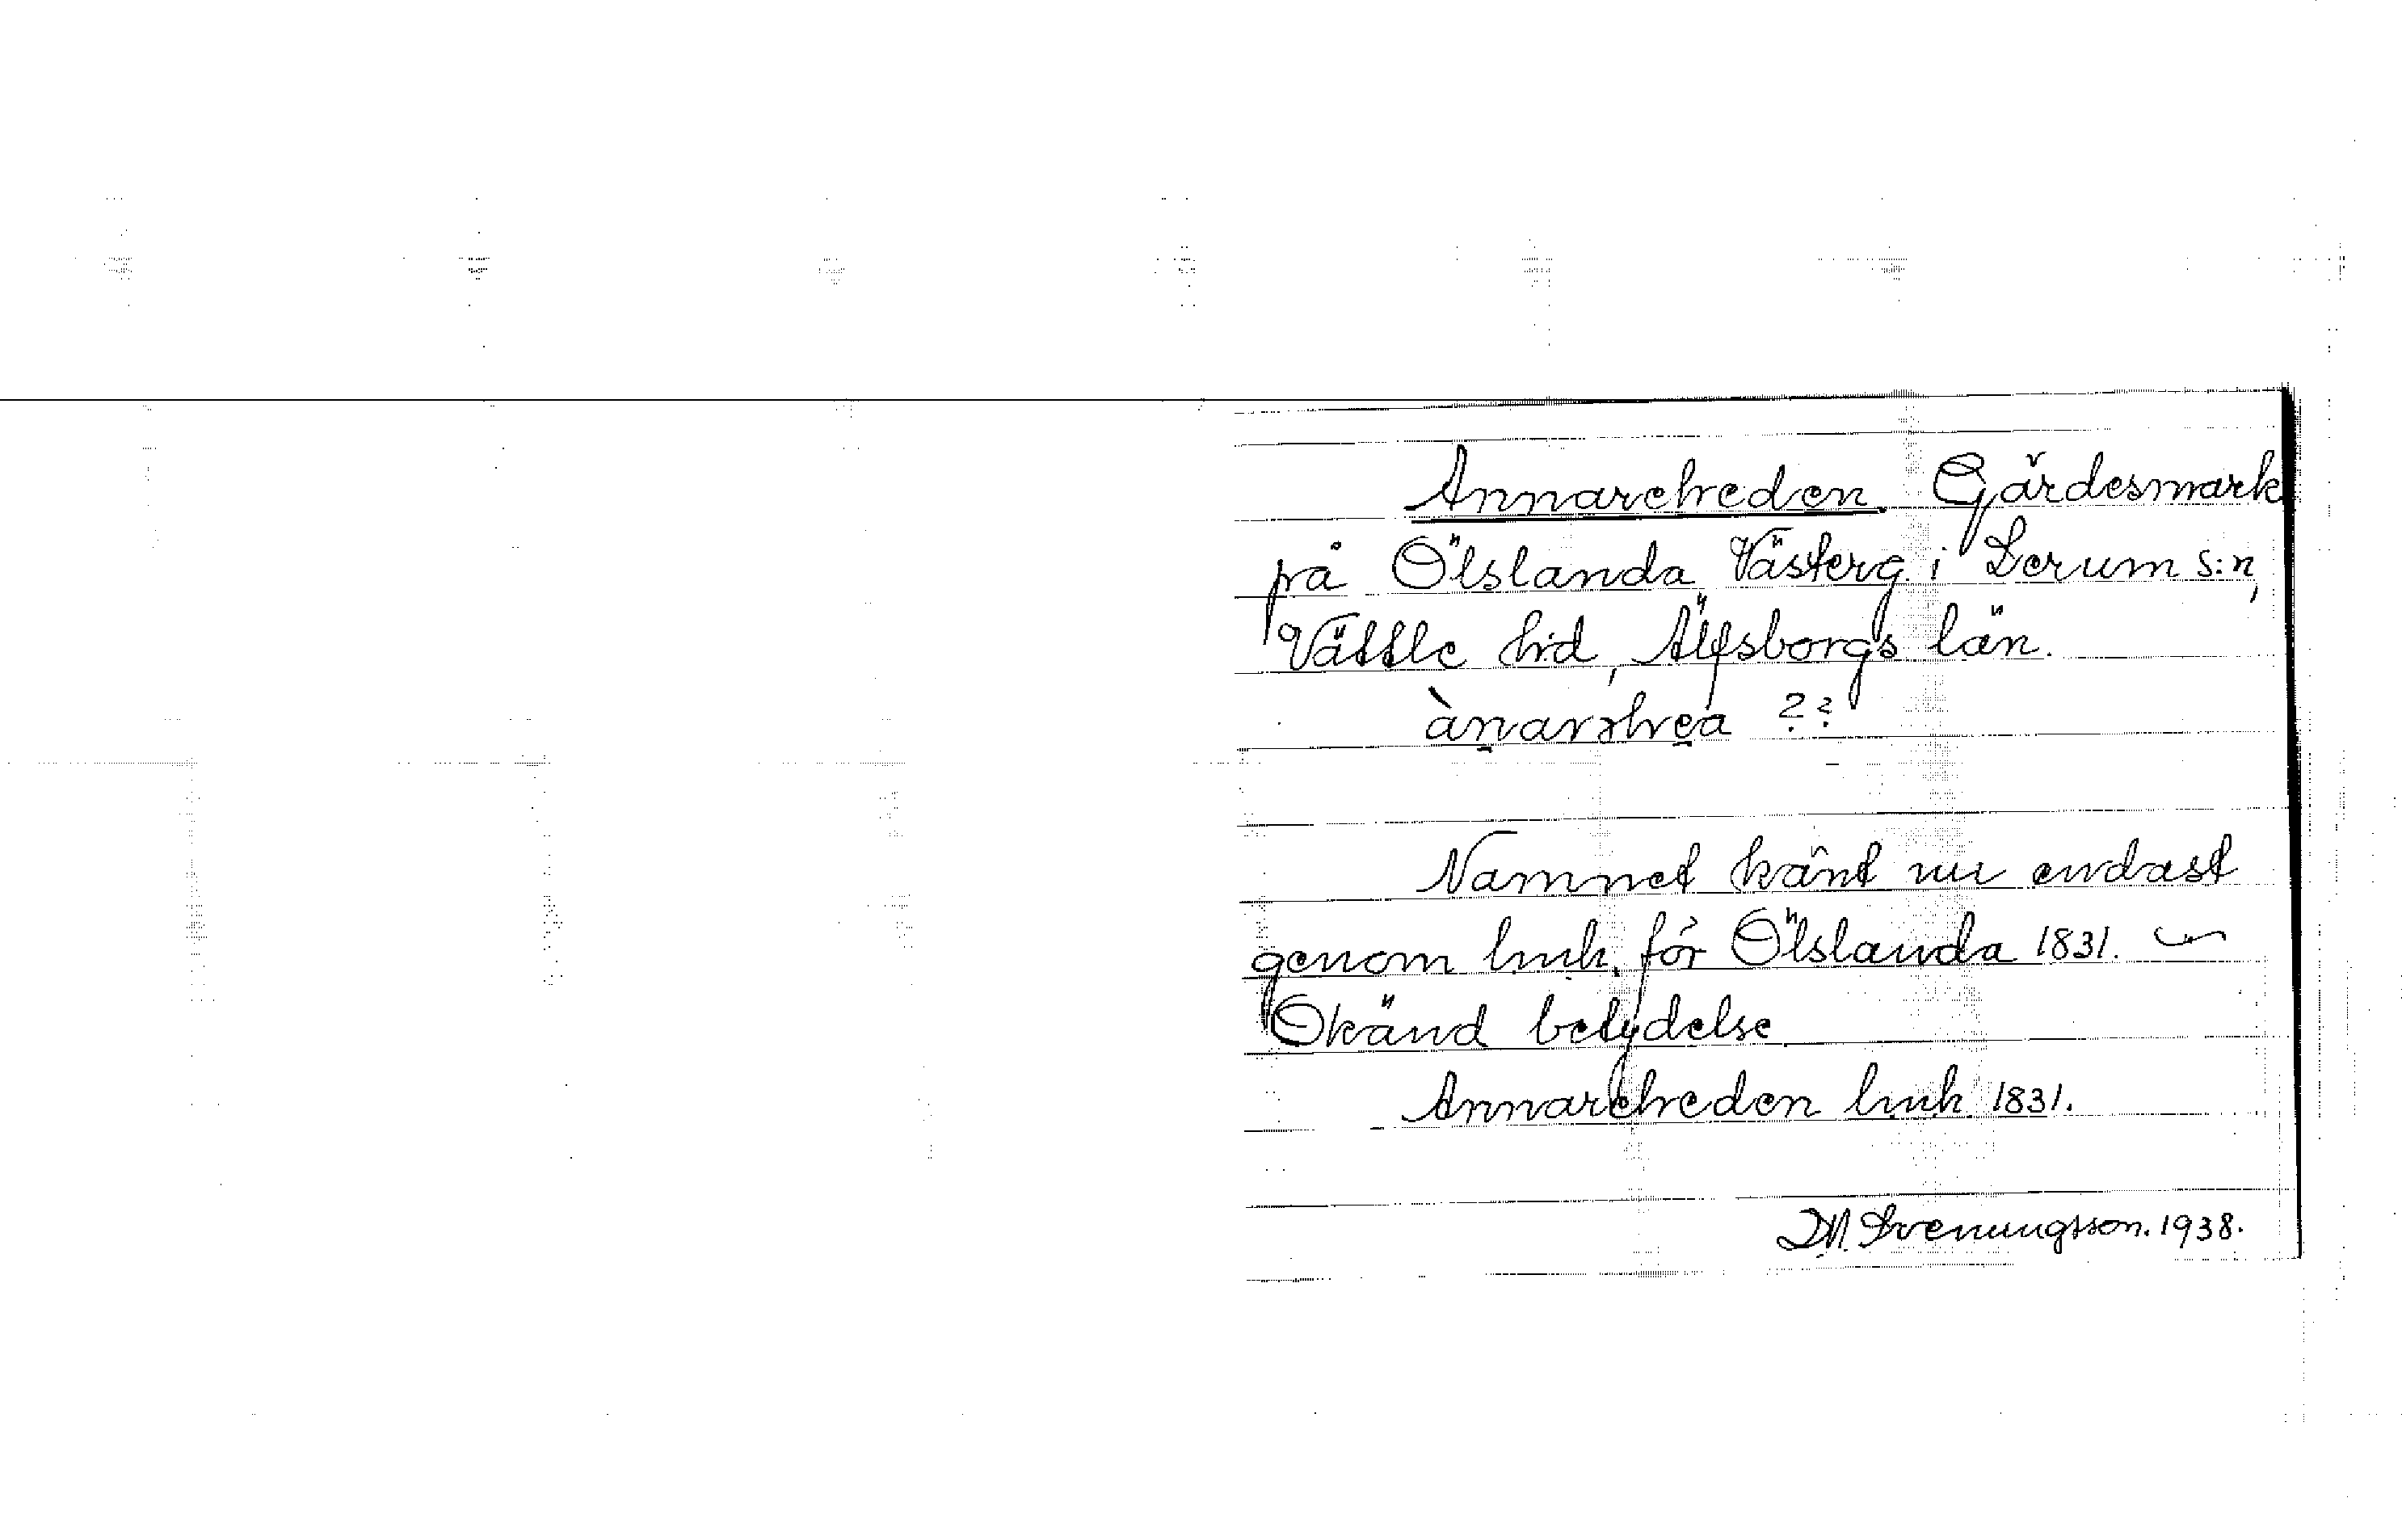 Annarehreden. Gärdesmark
på Ölslanda Västerg. i Lerum s:n,
Vättle hd, Älfsborgs län.
ànarəhrea ??
Namnet känt nu endast
genom lmh. för Ölslanda 1831.
Okänd betydelse
Annarehreden lmh 1831.
D.N. Svenungsson. 1938.